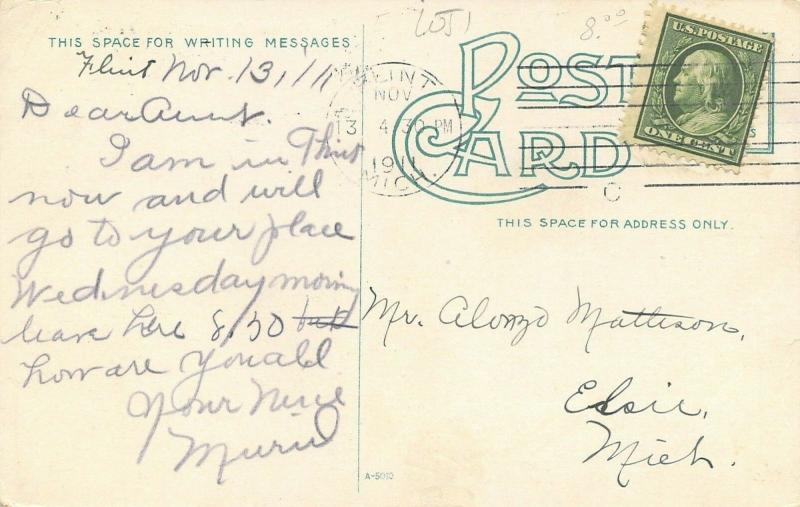 1051
8.00
THIS SPACE FOR WRITING MESSAGES
POST CARD
U.S. POSTAGE
ONE CENT
FLINT
NOV
13 4 30 PM
1911
MICH.
C
THIS SPACE FOR ADDRESS ONLY.
Flint Nov. 13, /11
Dear Aunt.
I am in Flint
now and will
go to your place
Wednesday morning
leave here 8,30
how are you all
Your Niece
Muriel
Mr. Alonzo Mattison,
Elsie,
Mich.
A-5010